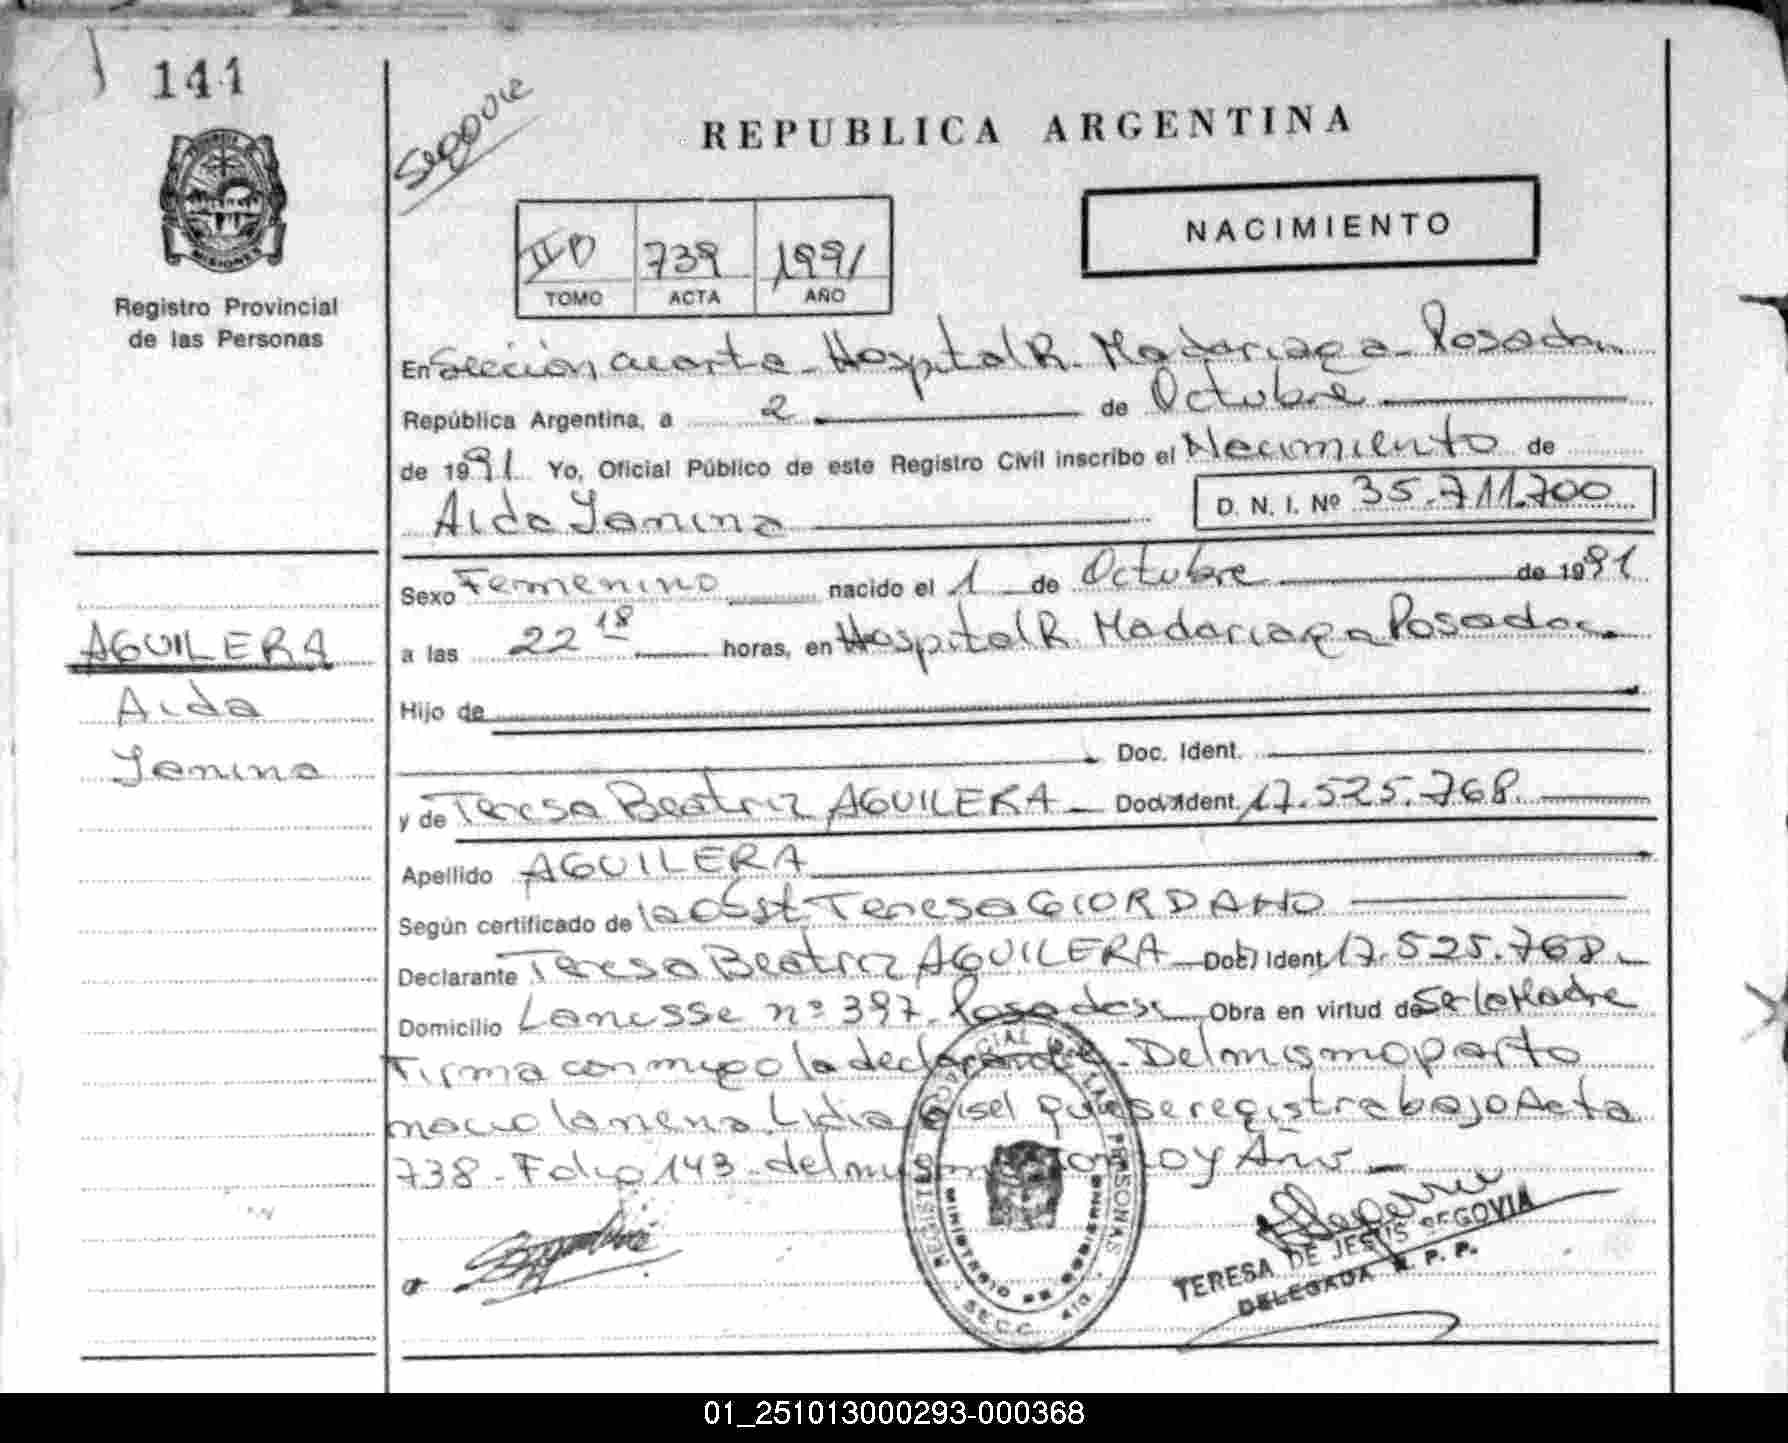 144
Segovie
REPUBLICA ARGENTINA
NACIMIENTO
II D 739 1991
TOMO ACTA AÑO
MISIONES
Registro Provincial
de las Personas
En Sección cuarta - Hospital R. Madariaga - Posadas
República Argentina, a 2 de Octubre
de 1991 Yo, Oficial Público de este Registro Civil inscribo el Nacimiento de
Aida Yanina D. N. I. Nº 35.711.700
Sexo Femenino nacido el 1 de Octubre de 1991
a las 22 18 horas, en Hospital R. Madariaga Posadas
AGUILERA
Aida
Yanina
Hijo de
Doc. Ident.
y de Teresa Beatriz AGUILERA - Doc. Ident. 17.525.768
Apellido AGUILERA
Según certificado de la Obst. Teresa GIORDANO
Declarante Teresa Beatriz AGUILERA - Doc. Ident. 17.525.768 -
Domicilio Lanusse nº 397 - Posadas Obra en virtud de Ser la Madre
Firma conmigo la declarante - Del mismo parto
nacio la nena Lidia Gisel que se registra bajo Acta
738 - Folio 143 - del mismo Tomo y Año -
REGISTRO PROVINCIAL DE LAS PERSONAS
MINISTERIO DE GOBIERNO
SECC. 4ta.
TERESA DE JESUS SEGOVIA
DELEGADA R. P. P.
01_251013000293-000368